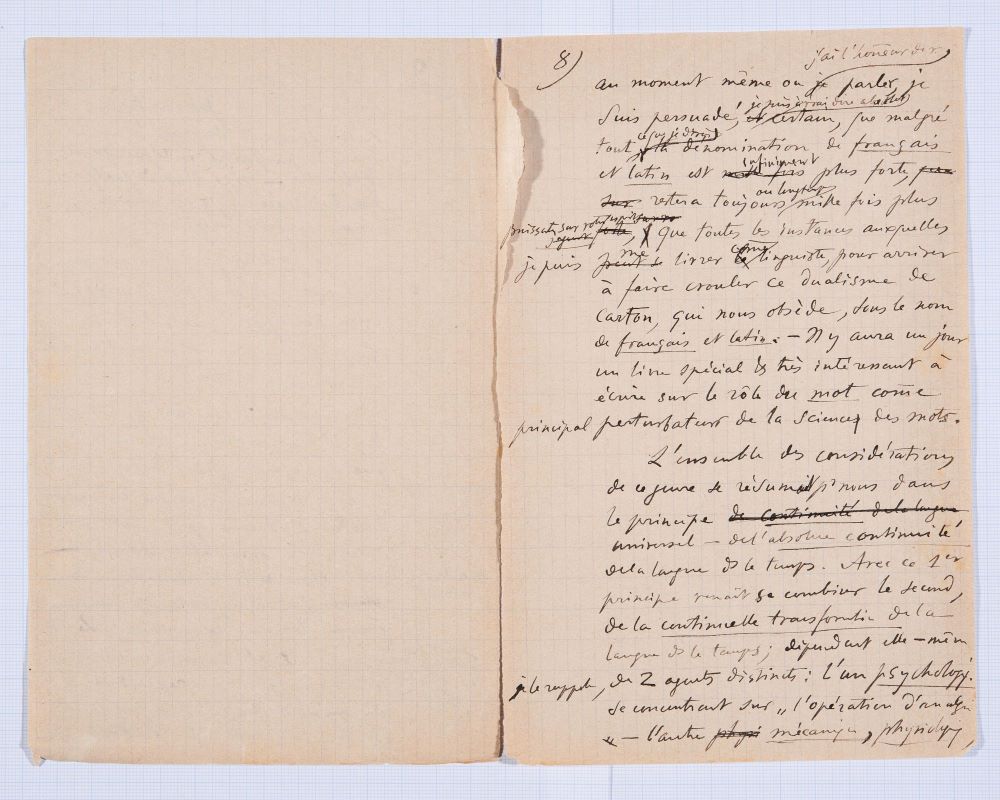 8)
j'ai l'honneur de v
au moment même où je parler, je
suis persuadé, et certain, que malgré
tout la dénomination de français
et latin est infiniment plus forte,
sur restera toujours, mille fois plus
puissant sur que toutes les instances auxquelles
je puis me livrer comme linguiste, pour arriver
à faire crouler ce dualisme de
carton, qui nous obsède, sous le nom
de français et latin. – Il y aura un jour
un livre spécial & très intéressant à
écrire sur le rôle du mot come
principal perturbateur de la science des mots.
L'ensemble des considérations
de ce genre se résumait pr nous dans
le principe de continuité de la langue
universel – de l'absolue continuité
de la langue ds le temps. Avec ce 1er
principe venait se combiner le second,
de la continuelle transformation de la
langue ds le temps; dépendant elle-même
je le rappelle, de 2 agents distincts: l'un psycholog.
se concentrant sur „l'opération d'analogie
“ – l'autre physi mécanique, physiologiq,